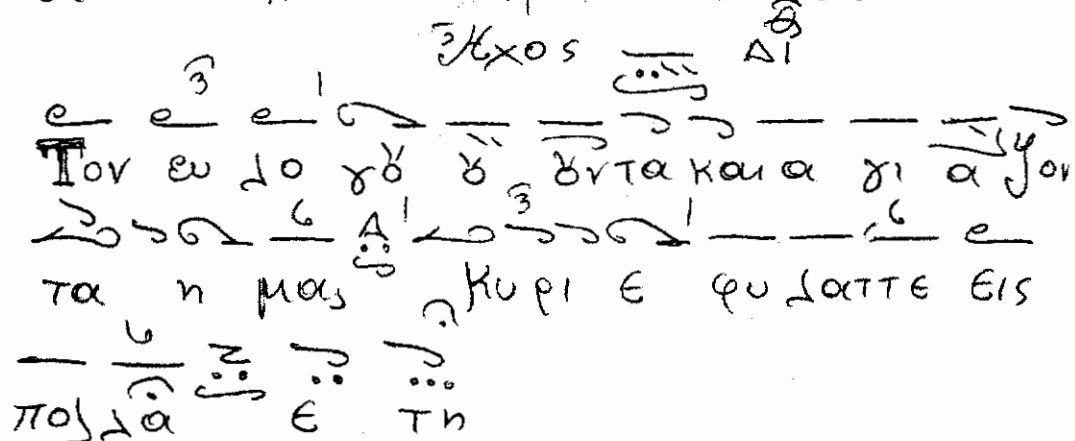 Ἦχος Δι
Τον ευ λο γȣ ȣ ȣντα και α γι α ζον
τα η μας Κυρι ε φυλαττε εις
πολλα ε τη